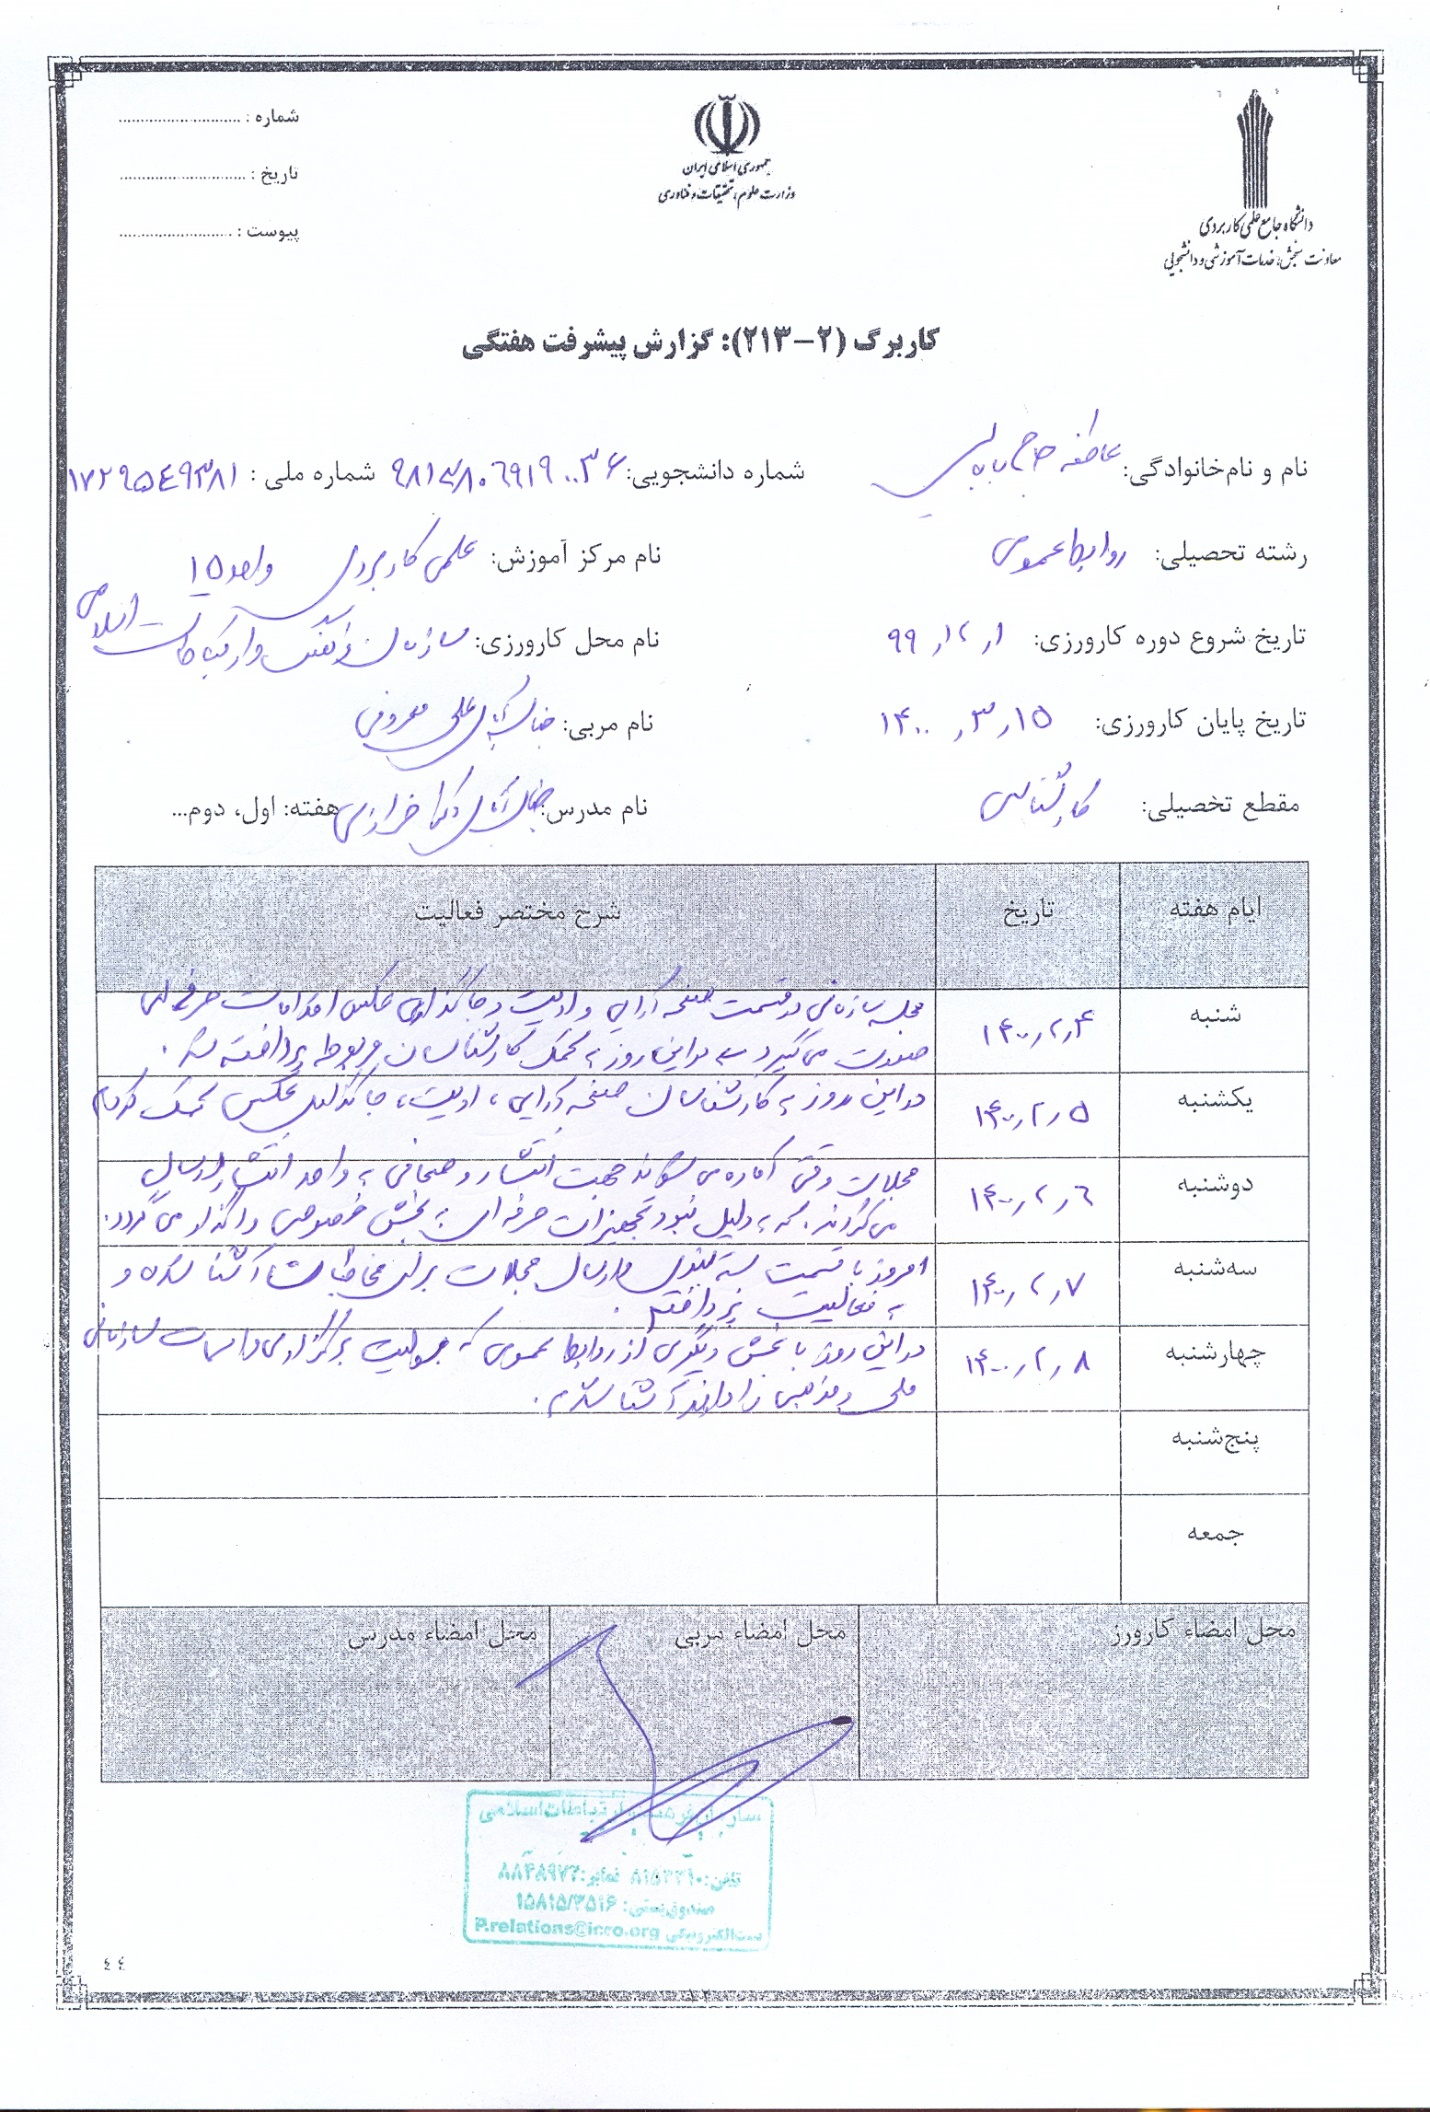 شماره : ............................
تاریخ : ............................
پیوست : ..........................
جمهوری اسلامی ایران
وزارت علوم، تحقیقات و فناوری
دانشگاه جامع علمی کاربردی
معاونت سنجش، خدمات آموزشی و دانشجویی
کاربرگ (۲-۲۱۳): گزارش پیشرفت هفتگی
نام و نام‌خانوادگی: عاطفه حاج بابایی شماره دانشجویی: شماره ملی :
رشته تحصیلی: روابط عمومی نام مرکز آموزش: علمی کاربردی واحد ۱۵
تاریخ شروع دوره کارورزی: ۹۹٫۱۲٫۱ نام محل کارورزی: سازمان فرهنگ و ارتباطات اسلامی
تاریخ پایان کارورزی: ۱۴۰۰٫۳٫۱۵ نام مربی: جناب آقای علی معروفی
مقطع تحصیلی: کارشناسی نام مدرس: جناب آقای دکتر خرازی هفته: اول، دوم...
ایام هفته تاریخ شرح مختصر فعالیت
شنبه ۱۴۰۰٫۲٫۴ مجله سازمانی در قسمت صفحه آرایی و ادیت و جاگذاری عکس اقدامات حرفه ای
صورت می گیرد در این روز به کمک کارشناسان مربوط پرداخته شد.
یکشنبه ۱۴۰۰٫۲٫۵ در این روز به کارشناسان صفحه آرایی، ادیت، جاگذاری عکس کمک کردم
دوشنبه ۱۴۰۰٫۲٫۶ مجلات وقتی آماده می شوند جهت انتشار و صحافی به واحد انتشار ارسال
می گردند. که به دلیل نبود تجهیزات حرفه ای به بخش خصوصی واگذار می گردد.
سه‌شنبه ۱۴۰۰٫۲٫۷ امروز با قسمت بسته بندی و ارسال مجلات برای مخاطبان آشنا شده و
به فعالیت پرداختم.
چهارشنبه ۱۴۰۰٫۲٫۸ در این روز با بخش دیگری از روابط عمومی که مسولیت برگزاری مراسمات سازمانی
ملی و مذهبی را دارند آشنا شدم.
پنج‌شنبه
جمعه
محل امضاء کارورز محل امضاء مربی محل امضاء مدرس
سازمان فرهنگ و ارتباطات اسلامی
تلفن: نمابر:
صندوق پستی: ۱۵۸۱۵/۳۵۱۶
پست الکترونیکی P.relations@icro.org
٤٤